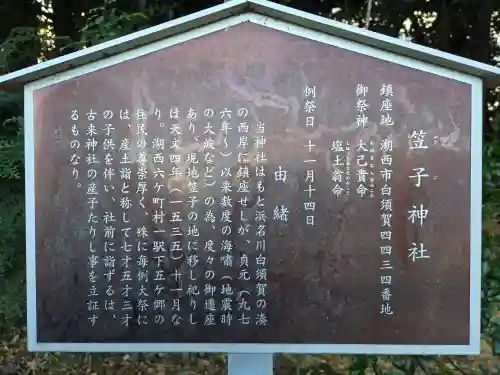 笠子神社
鎮座地　湖西市白須賀四四三四番地
御祭神　大己貴命
塩土翁命
例祭日　十一月十四日
由緒
当神社はもと浜名川白須賀の湊
の西岸に鎮座せしが、貞元（九七
六年～）以来数度の海嘯（地震時
の大波など）の為、度々の御遷座
あり、現地笠子の地に移し祀りし
は天文四年（一五三五）十一月な
り。湖西六ケ町村一駅下五ケ郷の
住民の尊崇厚く、殊に毎例大祭に
は、産土詣と称して七才五才三才
の子供を伴い、社前に詣ずるは、
古来神社の産子たりし事を立証す
るものなり。